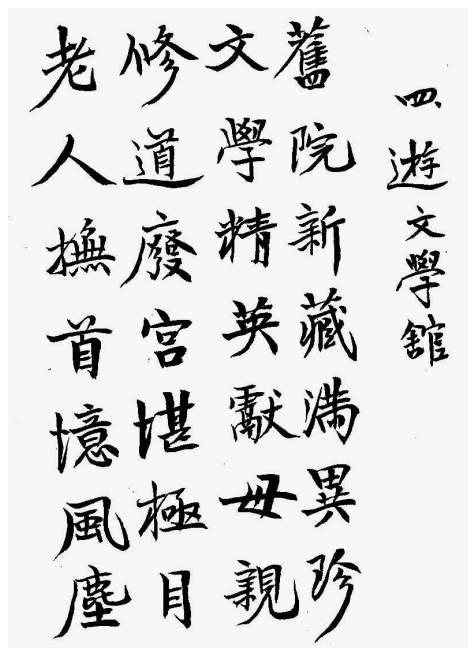 四、遊文學舘
舊院新藏满異珍
文學精英獻母親
修道廢宮堪極目
老人撫首憶風塵